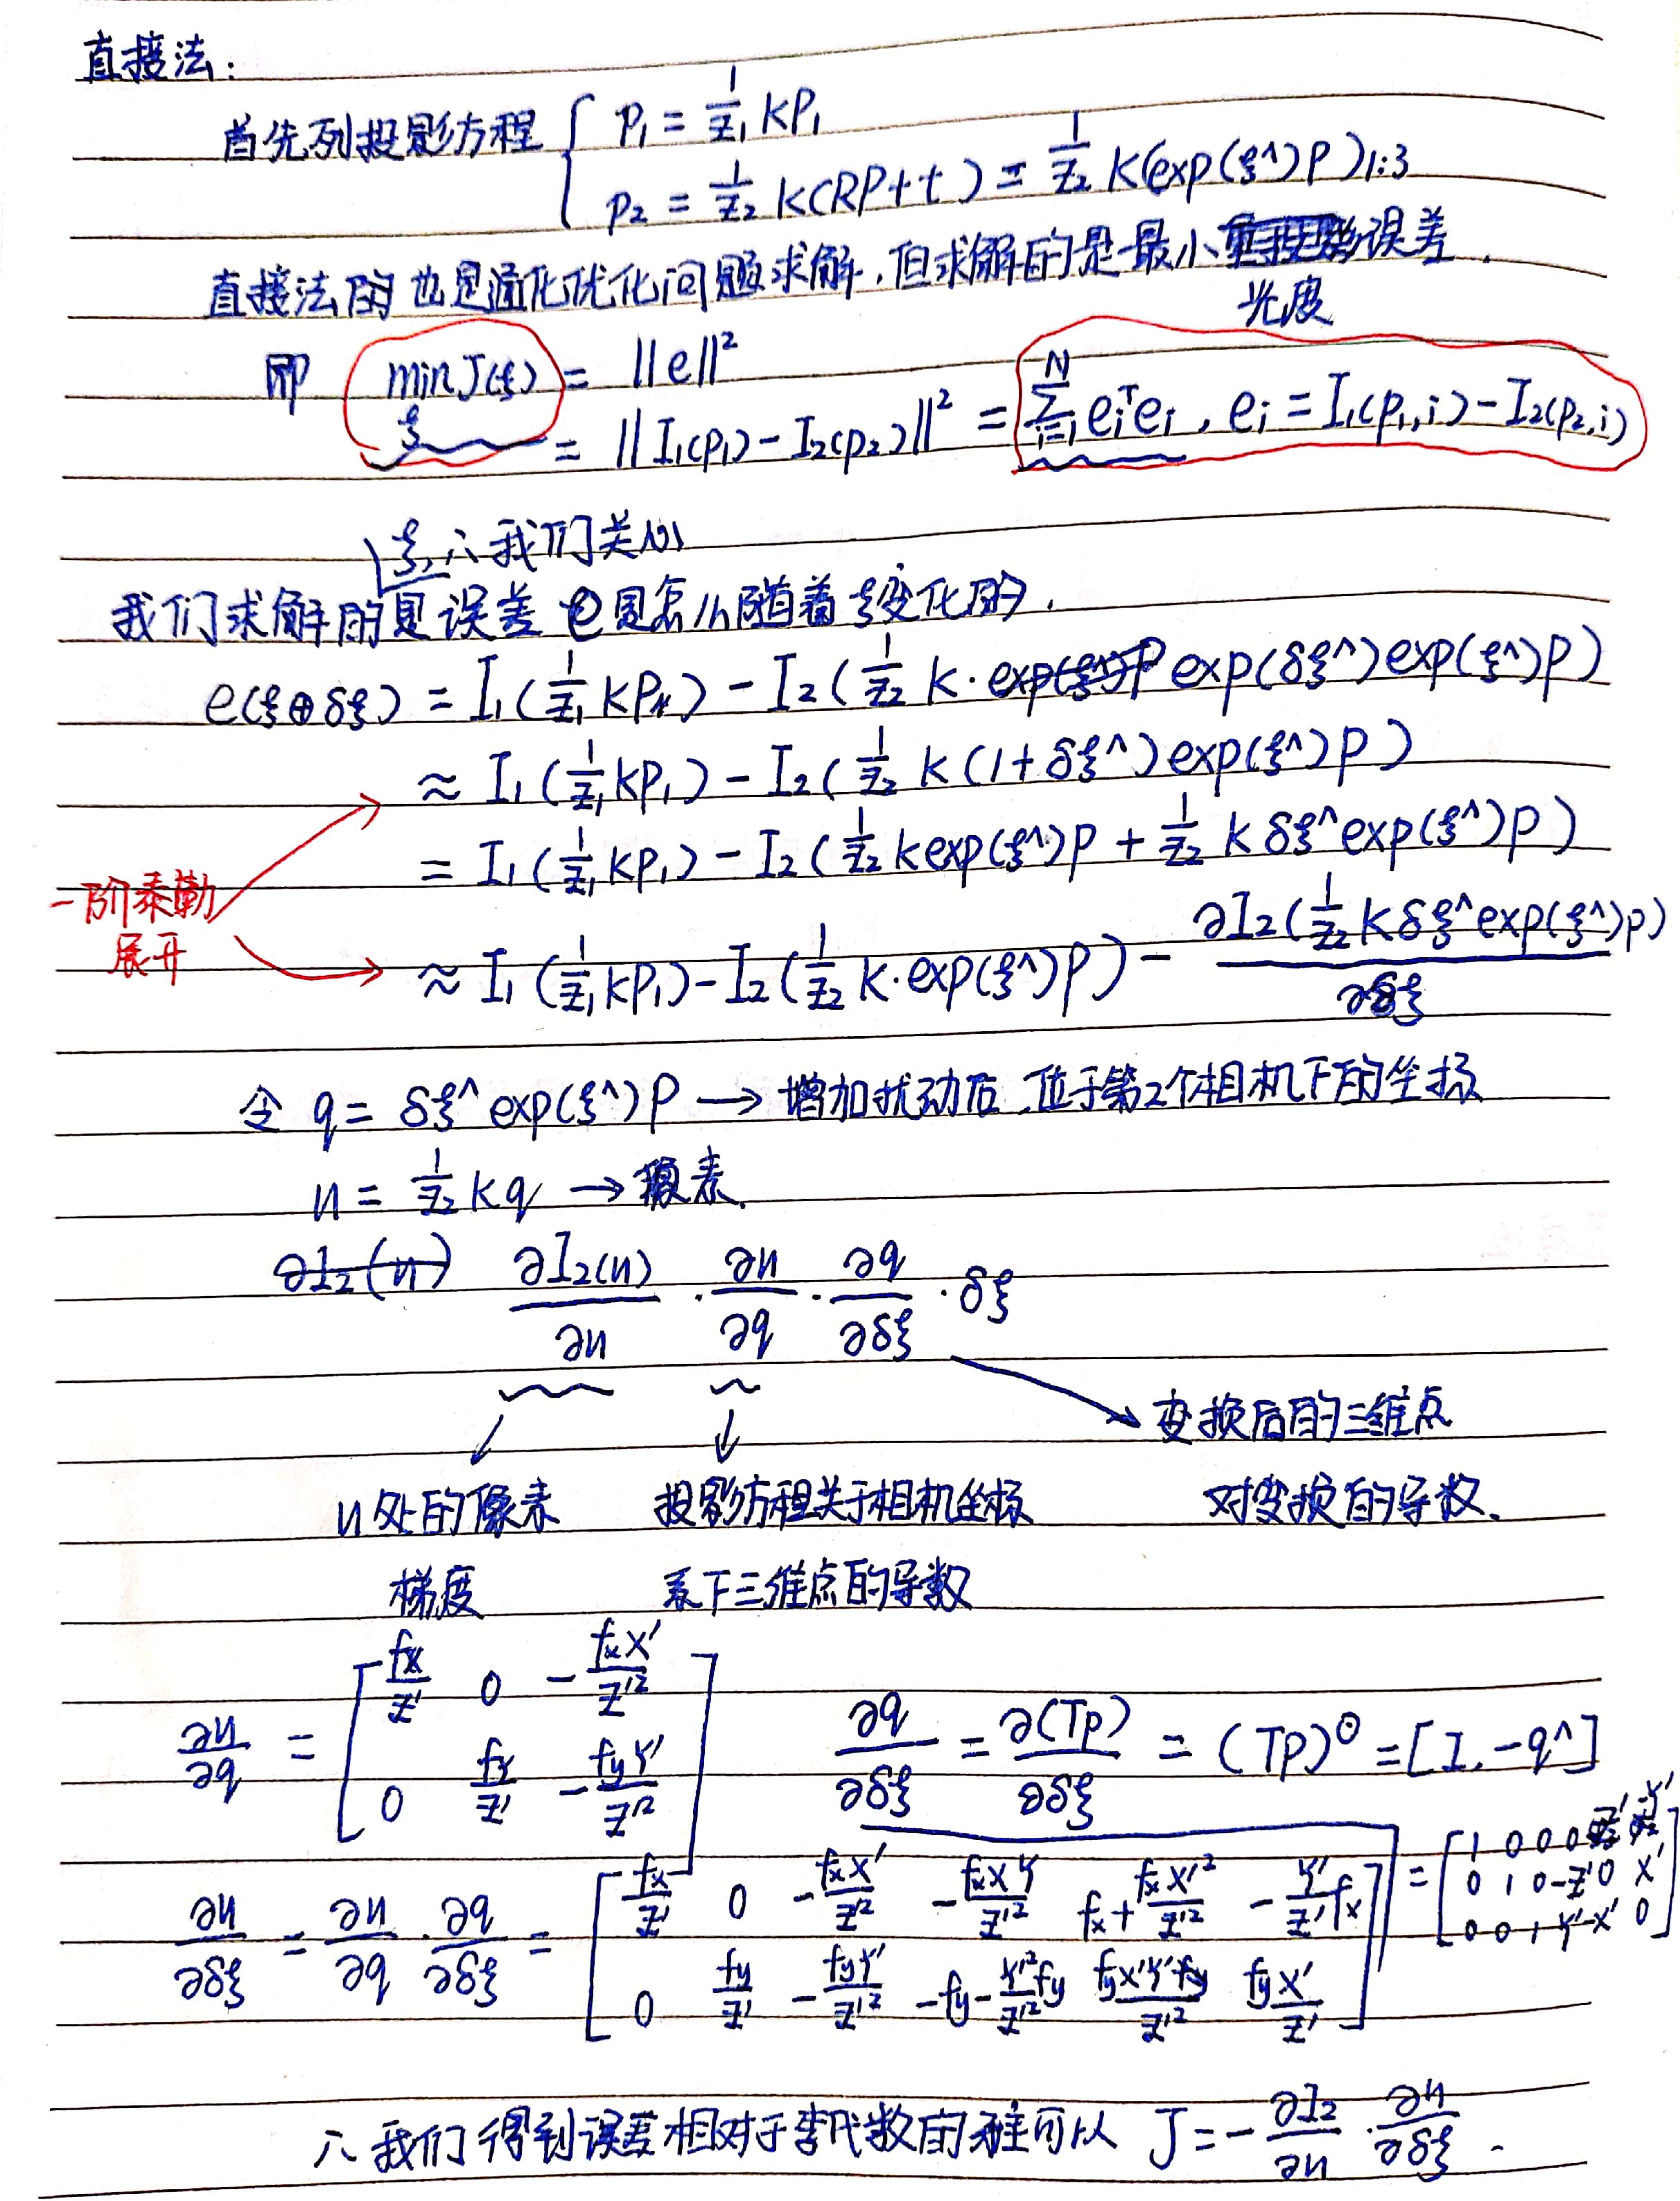 直接法:
首先列投影方程 { p₁ = 1/z₁ KP₁
p₂ = 1/z₂ K(RP+t) = 1/z₂ K(exp(ξ^)P)1:3
直接法的也是通化优化问题求解,但求解的是最小误差.
光度
即 min J(ξ) = ||e||²
ξ = ||I₁(p₁) - I₂(p₂)||² = Σ_{i=1}^{N} eᵢᵀeᵢ , eᵢ = I₁(p₁,i) - I₂(p₂,i)
ξ, ∴我们关心
我们求解的是误差 e是怎么随着ξ变化的.
e(ξ⊕δξ) = I₁(1/z₁ KP₁) - I₂(1/z₂ K· exp(δξ^)exp(ξ^)P)
≈ I₁(1/z₁ KP₁) - I₂(1/z₂ K(1+δξ^)exp(ξ^)P)
= I₁(1/z₁ KP₁) - I₂(1/z₂ Kexp(ξ^)P + 1/z₂ Kδξ^exp(ξ^)P)
一阶泰勒
展开
≈ I₁(1/z₁ KP₁) - I₂(1/z₂ K·exp(ξ^)P) - ∂I₂(1/z₂ Kδξ^exp(ξ^)P)/∂δξ
令 q = δξ^ exp(ξ^)P → 增加扰动后,位于第2个相机下的坐标
u = 1/z₂ Kq → 像素.
∂I₂(u) ∂I₂(u)/∂u · ∂u/∂q · ∂q/∂δξ · δξ
变换后的三维点
u处的像素 投影方程关于相机坐标 对变换的导数.
梯度 系下三维点的导数
∂u/∂q = [ fx/Z' 0 -fxX'/Z'² ; 0 fy/Z' -fyY'/Z'² ] ∂q/∂δξ = ∂(Tp)/∂δξ = (TP)^⊙ = [I, -q^]
= [ 1 0 0 0 Z' -Y' ; 0 1 0 -Z' 0 X' ; 0 0 1 Y' -X' 0 ]
∂u/∂δξ = ∂u/∂q · ∂q/∂δξ = [ fx/Z' 0 -fxX'/Z'² -fxX'Y'/Z'² fx+fxX'²/Z'² -Y'/Z' fx ; 0 fy/Z' -fyY'/Z'² -fy-Y'²fy/Z'² fyX'Y'/Z'² fyX'/Z' ]
∴我们得到误差相对于李代数的雅可以 J = -∂I₂/∂u · ∂u/∂δξ .